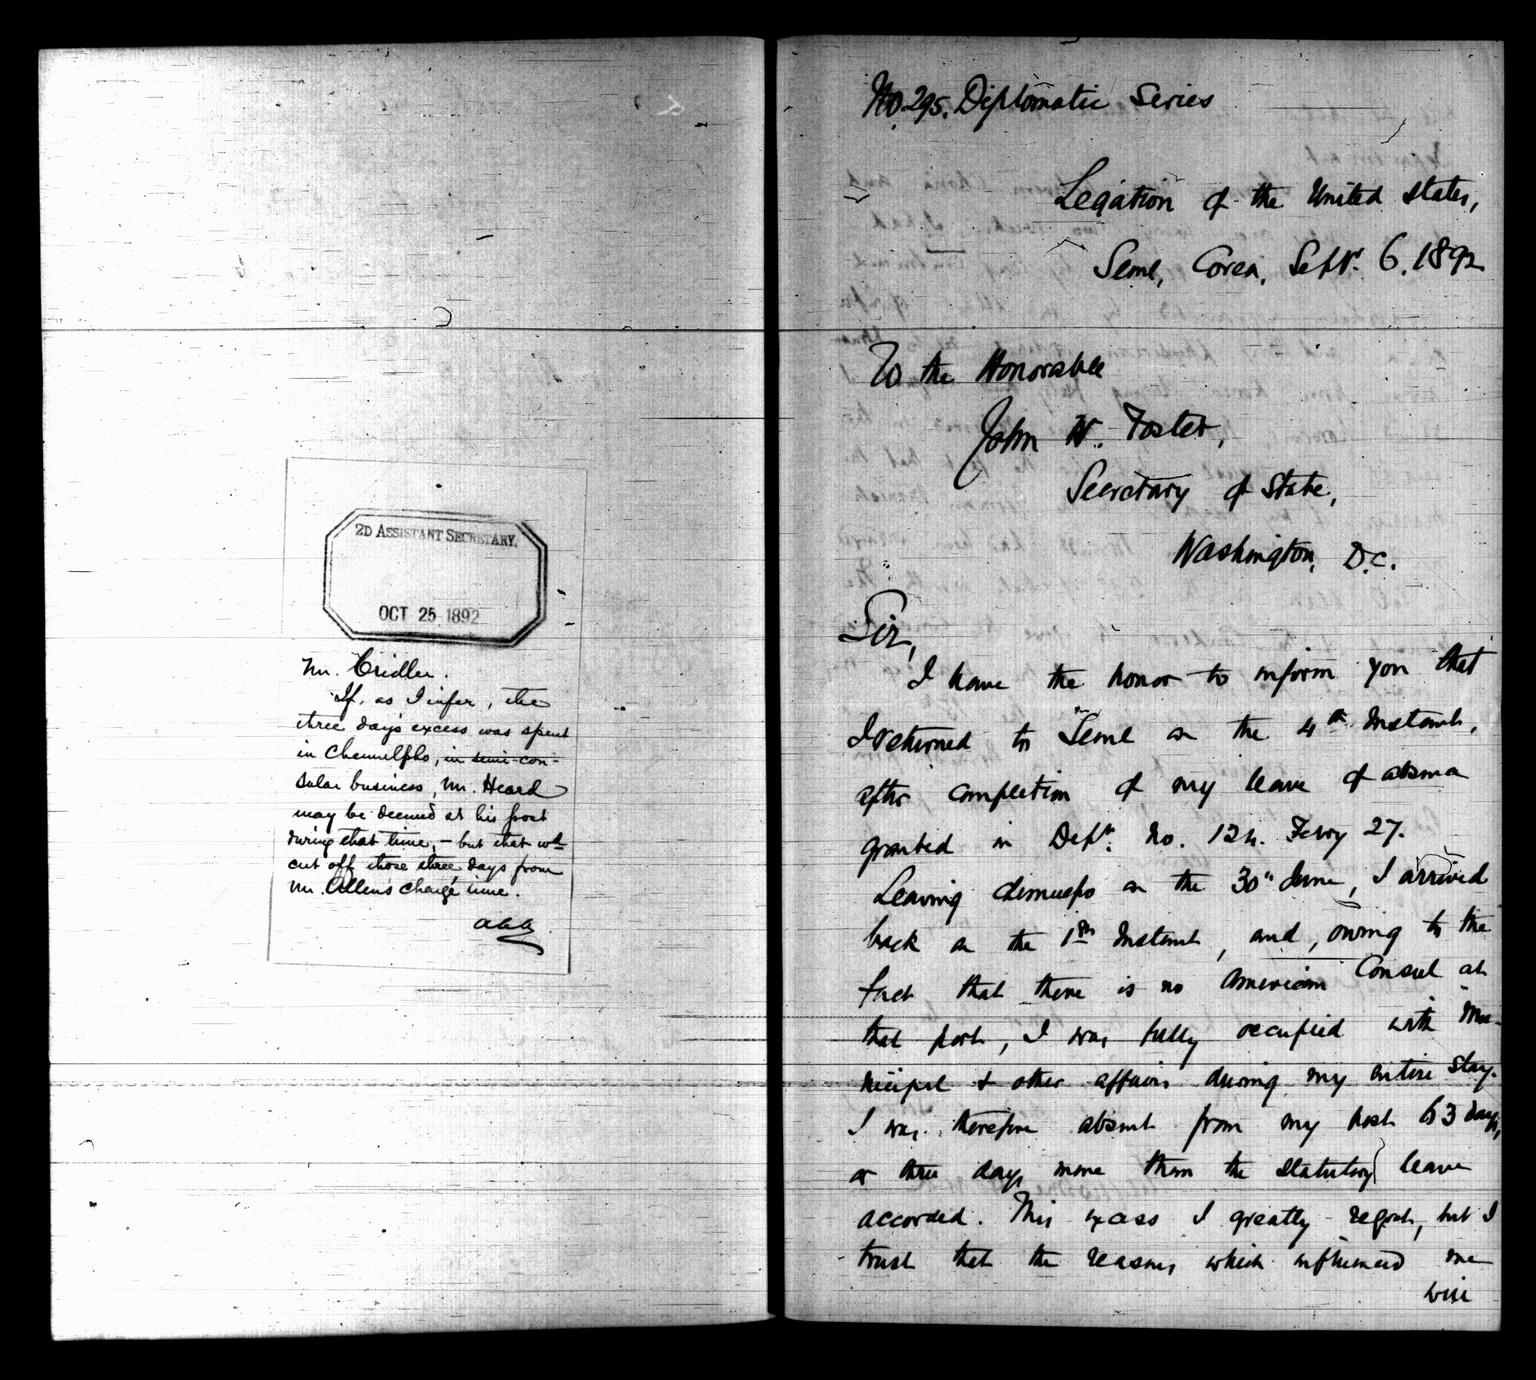 2D ASSISTANT SECRETARY.
OCT 25 1892
Mr. Cridler.
If, as I infer, the
three day's excess was spent
in Chemulpho, in semi-con-
sular business, Mr. Heard
may be deemed at his post
during that time, – but that wd.
cut off those three days from
Mr. Allen's Chargé time.
AAA
No. 295. Diplomatic Series
Legation of the United States,
Seoul, Corea, Sept. 6. 1892
To the Honorable
John W. Foster,
Secretary of State,
Washington, D.C.
Sir,
I have the honor to inform you that
I returned to Seoul on the 4th Instant,
after completion of my leave of absence
granted in Dept. No. 124. Febry 27.
Leaving Chemulpo on the 30" June, I arrived
back on the 1st Instant, and, owing to the
fact that there is no American Consul at
that port, I was fully occupied with Mu-
nicipal & other affairs during my entire stay.
I was therefore absent from my post 63 days,
or three days more than the statutory leave
accorded. This excess I greatly regret, but I
trust that the reasons which influenced me
will